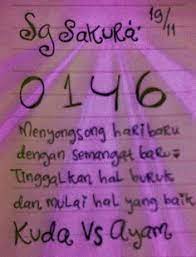 Sg Sakura: 19/11
0146
Menyongsong hari baru
dengan semangat baru
Tinggalkan hal buruk
dan mulai hal yang baik
Kuda Vs Ayam